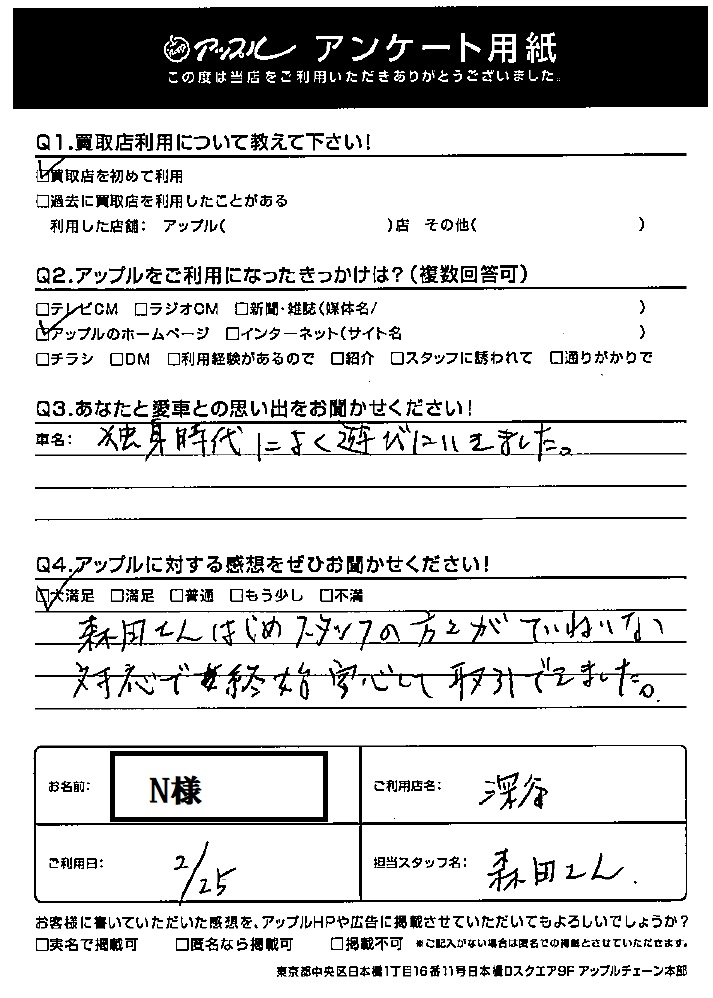 アップル アンケート用紙
この度は当店をご利用いただきありがとうございました。
Q1.買取店利用について教えて下さい!
☑買取店を初めて利用
□過去に買取店を利用したことがある
利用した店舗: アップル( )店 その他( )
Q2.アップルをご利用になったきっかけは?(複数回答可)
□テレビCM □ラジオCM □新聞・雑誌(媒体名/ )
☑アップルのホームページ □インターネット(サイト名 )
□チラシ □DM □利用経験があるので □紹介 □スタッフに誘われて □通りがかりで
Q3.あなたと愛車との思い出をお聞かせください!
車名: 独身時代によく遊びにいきました。
Q4.アップルに対する感想をぜひお聞かせください!
☑大満足 □満足 □普通 □もう少し □不満
森田さんはじめスタッフの方々がていねいな
対応で終始安心して取引できました。
お名前: N様 ご利用店名: 深谷
ご利用日: 2/25 担当スタッフ名: 森田さん.
お客様に書いていただいた感想を、アップルHPや広告に掲載させていただいてもよろしいでしょうか?
□実名で掲載可 □匿名なら掲載可 □掲載不可 ※ご記入がない場合は匿名での掲載とさせていただきます。
東京都中央区日本橋1丁目16番11号日本橋Dスクエア9F アップルチェーン本部